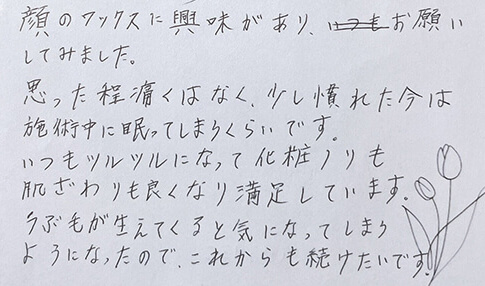 顔のワックスに興味があり、いつもお願い
してみました。
思った程痛くはなく、少し慣れた今は
施術中に眠ってしまうくらいです。
いつもツルツルになって化粧ノリも
肌ざわりも良くなり満足しています。
うぶ毛が生えてくると気になってしまう
ようになったので、これからも続けたいです。